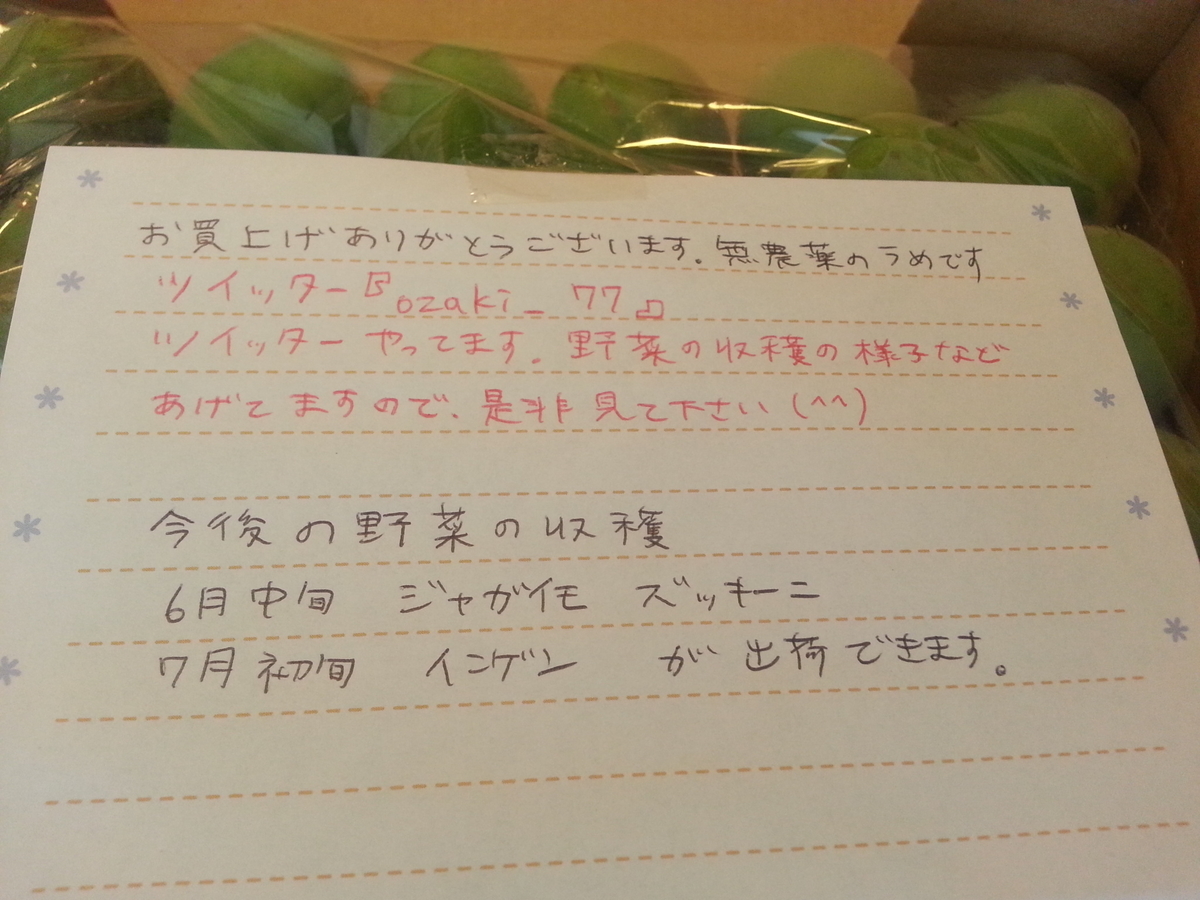 お買上げありがとうございます。無農薬のうめです
ツイッター『ozaki_77』
ツイッターやってます。野菜の収穫の様子など
あげてますので、是非見て下さい(^^)
今後の野菜の収穫
6月中旬 ジャガイモ ズッキーニ
7月初旬 インゲン が出荷できます。